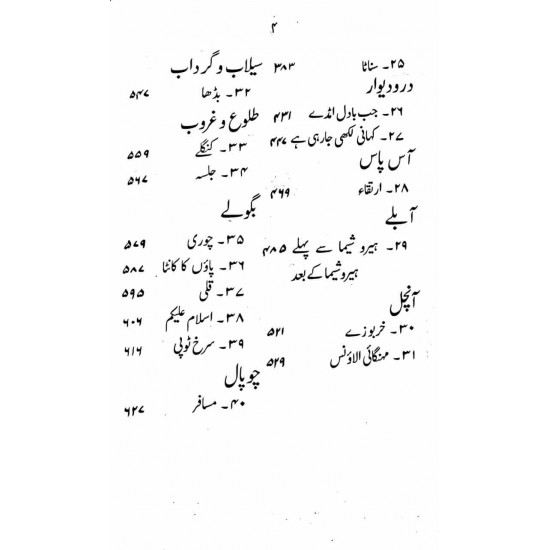 ۴
۲۵۔ سناٹا ۳۸۳
درودیوار
۲۶۔ جب بادل امڈے ۴۳۱
۲۷۔ کہانی لکھی جارہی ہے ۴۴۷
آس پاس
۲۸۔ ارتقاء ۴۶۹
آبلے
۲۹۔ ہیروشیما سے پہلے ۴۸۵
ہیروشیما کے بعد
آنچل
۳۰۔ خربوزے ۵۲۱
۳۱۔ مہنگائی الاؤنس ۵۲۹
سیلاب و گرداب
۳۲۔ بڈھا ۵۴۷
طلوع و غروب
۳۳۔ کنگلے ۵۵۹
۳۴۔ جلسہ ۵۶۷
بگولے
۳۵۔ چوری ۵۷۹
۳۶۔ پاؤں کا کانٹا ۵۸۷
۳۷۔ قلی ۵۹۵
۳۸۔ اسلام علیکم ۶۰۶
۳۹۔ سرخ ٹوپی ۶۱۶
چوپال
۴۰۔ مسافر ۶۲۷